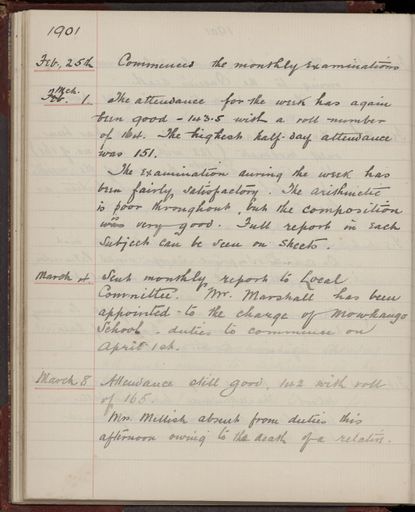 1901
Feb. 25th Commenced the monthly examinations
Mch.
Feb. 1. The attendance for the week has again
been good - 143.5 with a roll number
of 164. The highest half-day attendance
was 151.
The examination during the week has
been fairly satisfactory. The arithmetic
is poor throughout, but the composition
was very good. Full report in each
subject can be seen on sheets.
March 4. Sent monthly report to Local
Committee. Mr. Marshall has been
appointed to the charge of
School - duties to commence on
April 1st.
March 8 Attendance still good, 142 with roll
of 165.
Mrs. Mellish absent from duties this
afternoon owing to the death of a relative.